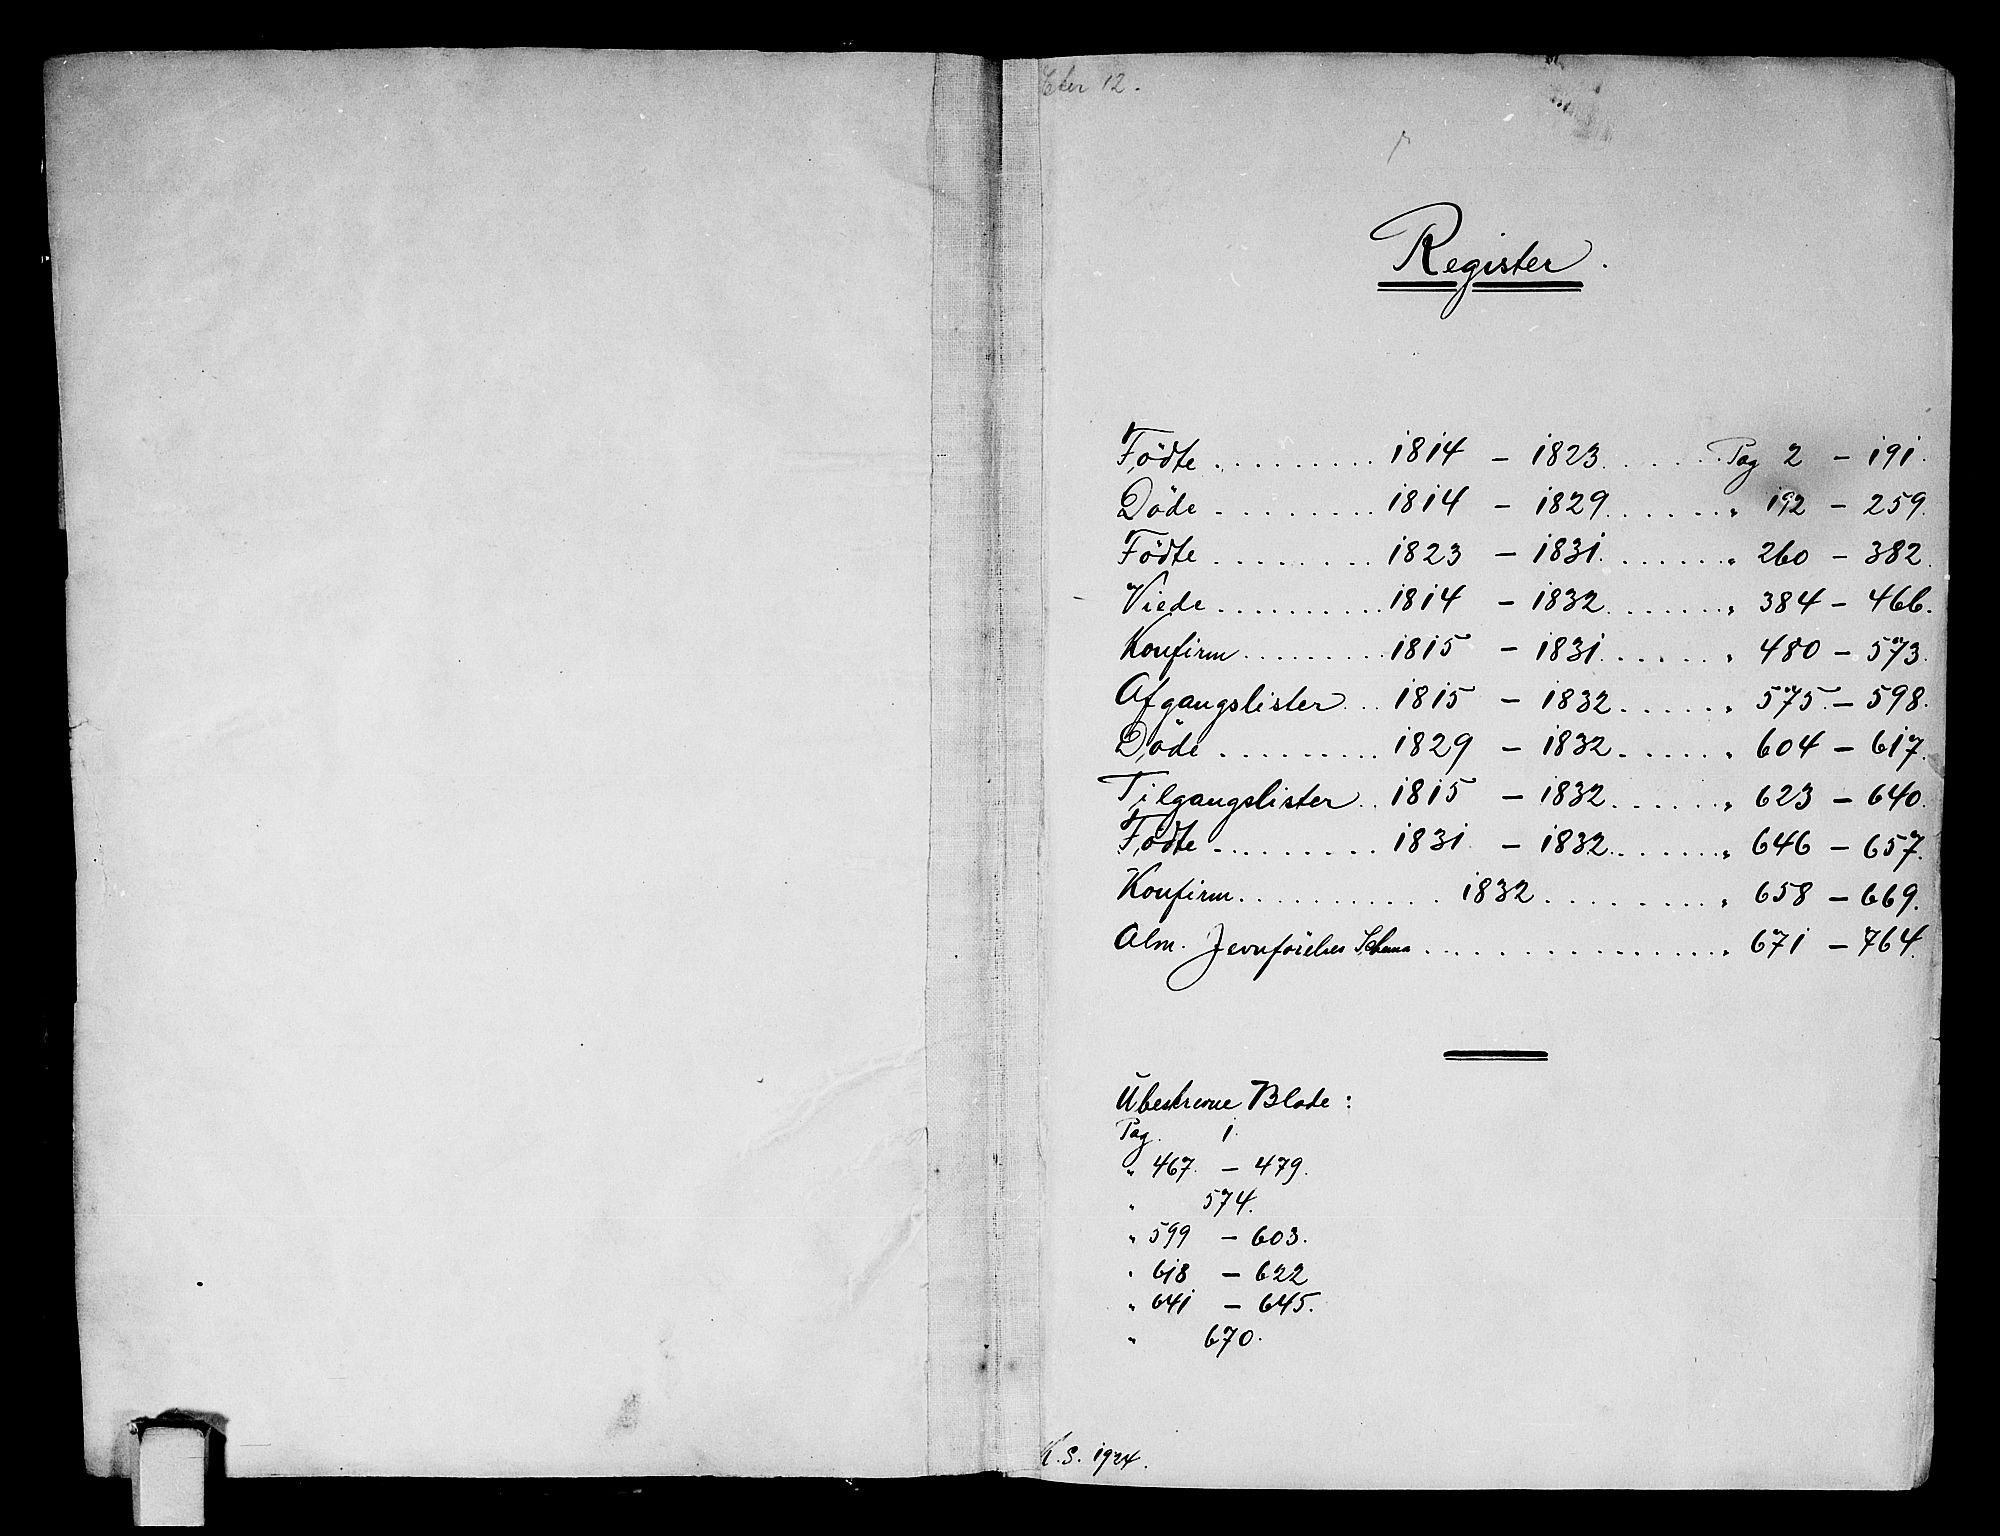 Eker 12.
Register.
Födte . . . . . . . . . 1814 – 1823 . . . . . . Pag 2 – 191.
Döde . . . . . . . . . 1814 – 1829 . . . . . . " 192 – 259.
Födte . . . . . . . . . 1823 – 1831 . . . . . . " 260 – 382.
Viede . . . . . . . . . 1814 – 1832 . . . . . . " 384 – 466.
Konfirm . . . . . . . . 1815 – 1831 . . . . . . " 480 – 573.
Afgangslister . . . 1815 – 1832 . . . . . . " 575 – 598.
Döde . . . . . . . . . 1829 – 1832 . . . . . . " 604 – 617.
Tilgangslister . . 1815 – 1832 . . . . . . " 623 – 640.
Födte . . . . . . . . . 1831 – 1832 . . . . . . " 646 – 657.
Konfirm . . . . . . . . . . . 1832 . . . . . . . . . " 658 – 669.
Alm. Jevnförelses Schema . . . . . . . . . . . . . . . " 671 – 764.
Ubeskrevne Blade :
Pag. 1.
" 467. – 479.
" 574.
" 599 – 603.
" 618 – 622
" 641 – 645.
" 670.
K. S. 1924.